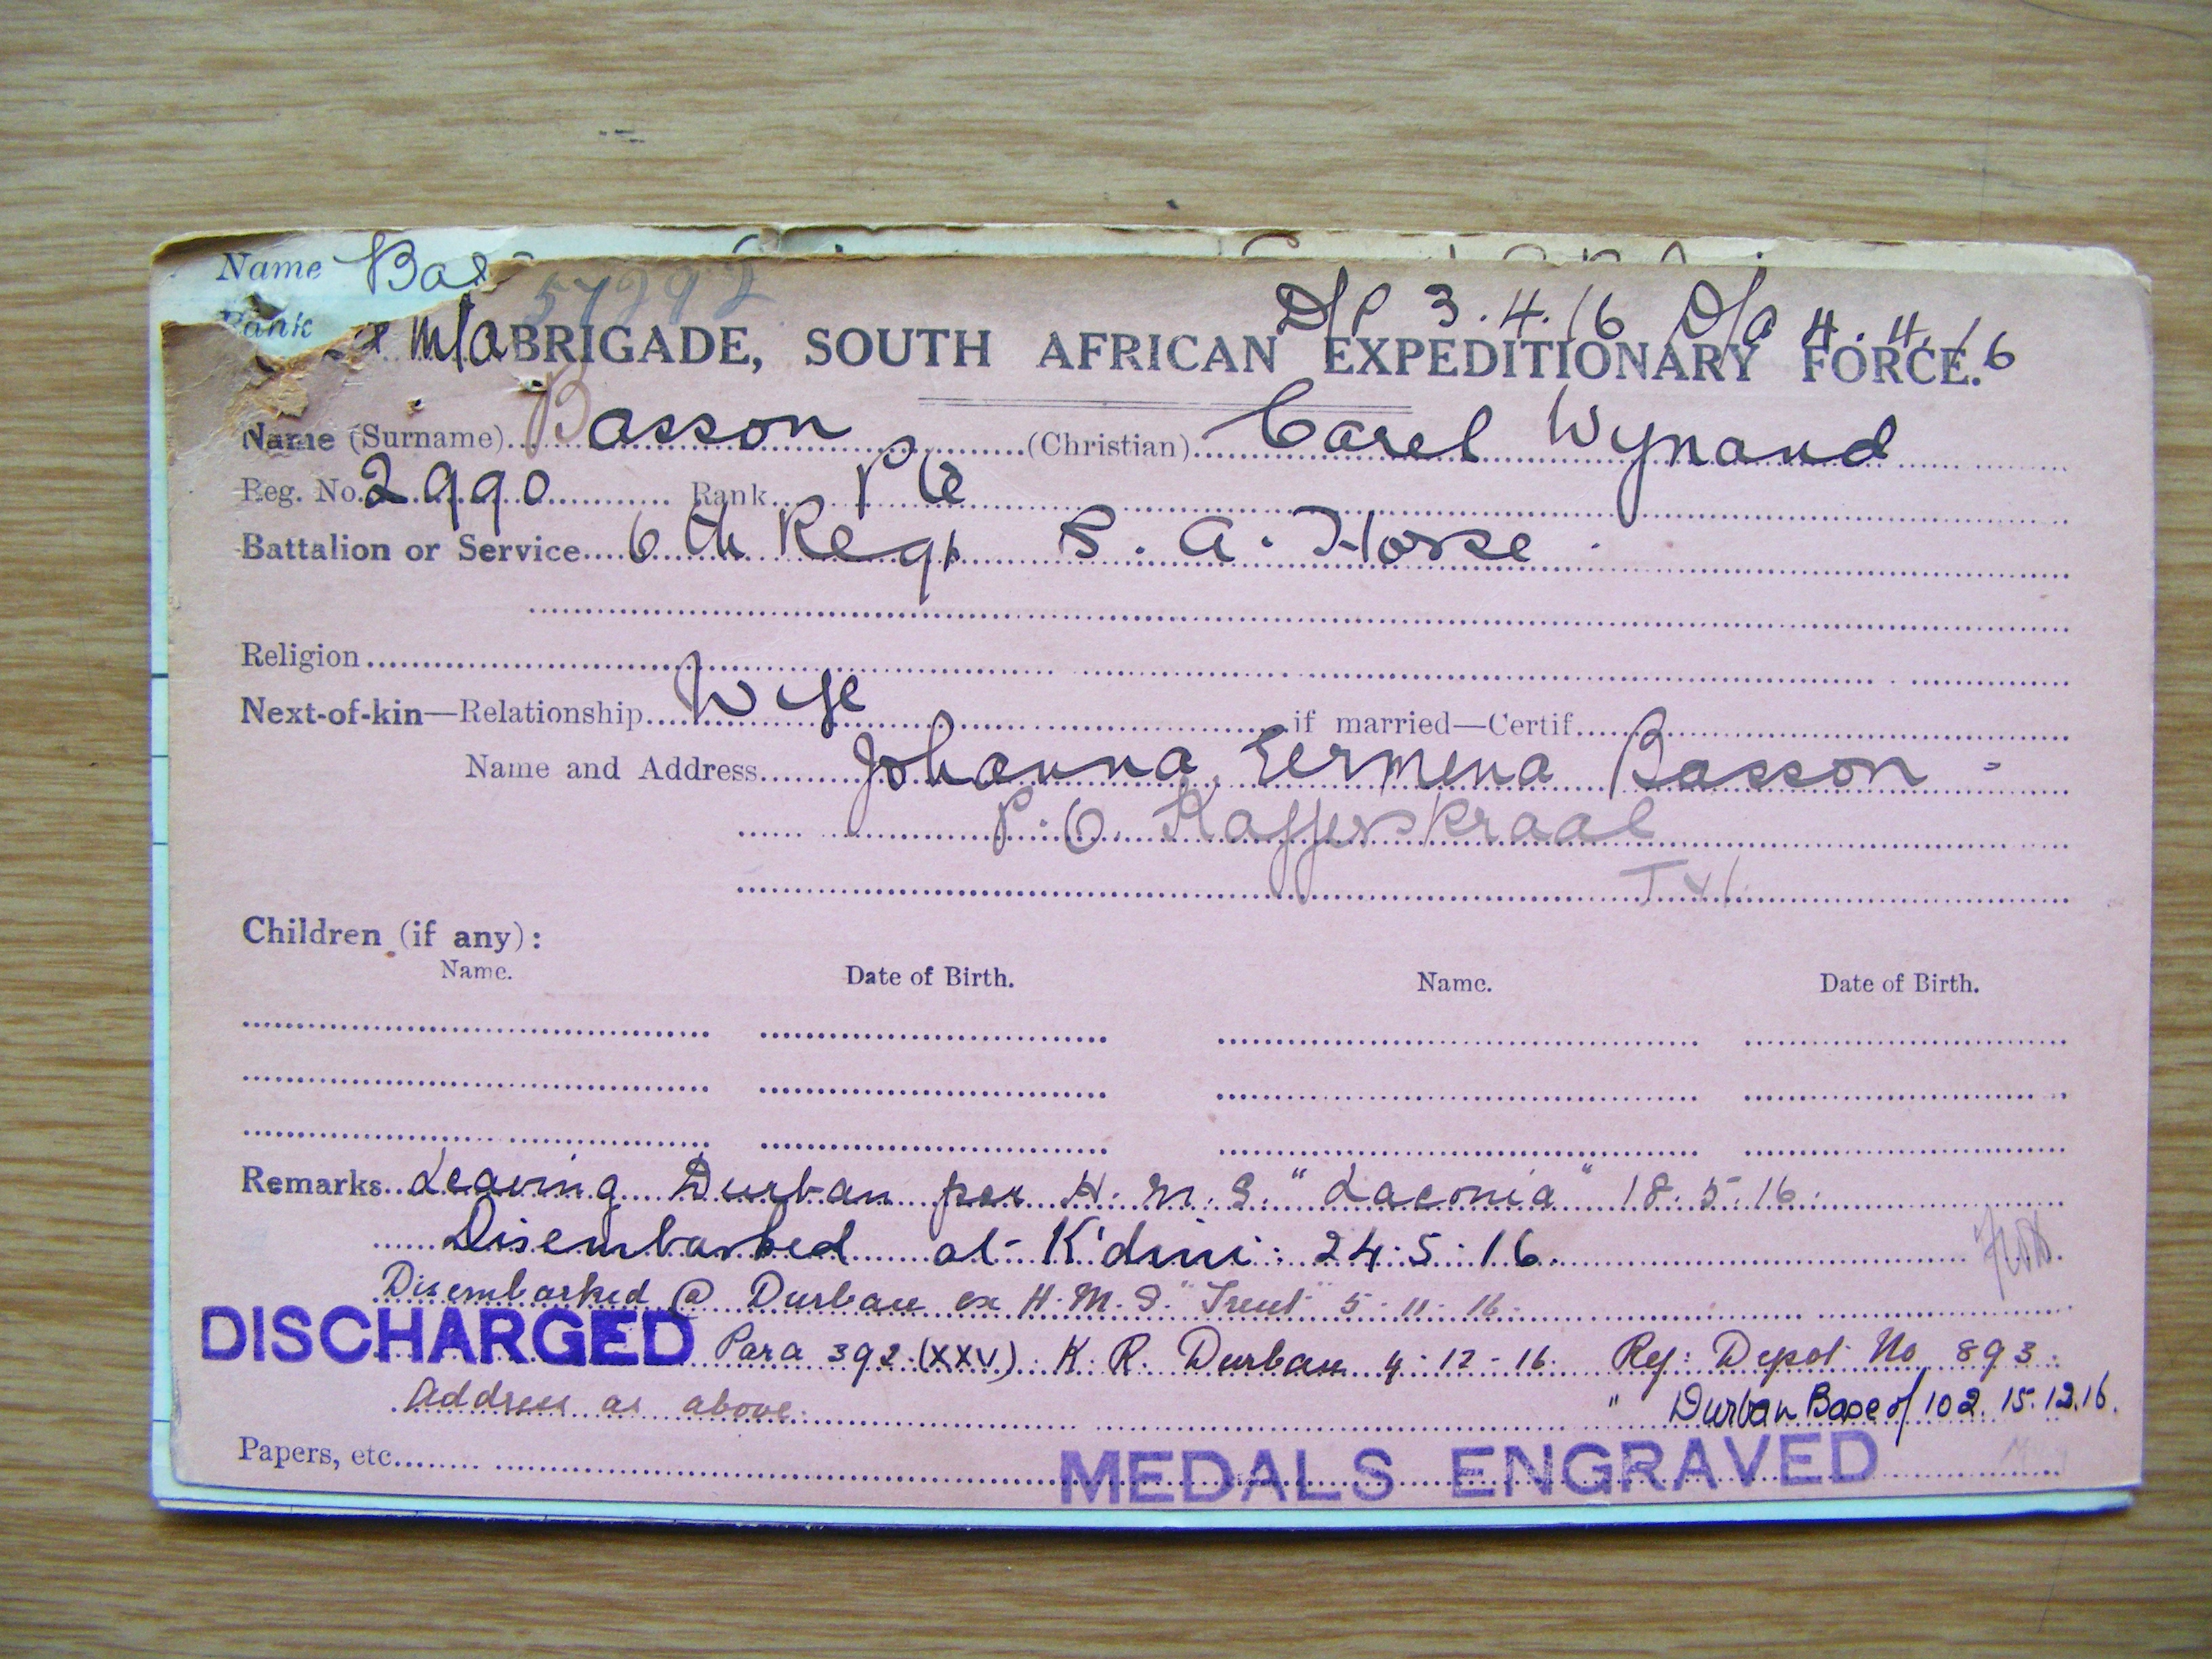 Name Bas
57292
Rank
D/P 3.4.16 D/A 4.4.16
M/A BRIGADE, SOUTH AFRICAN EXPEDITIONARY FORCE.
Name (Surname) Basson (Christian) Carel Wynand
Reg. No. 2990 Rank Pte
Battalion or Service 6th Regt S. A. Horse.
Religion
Next-of-kin—Relationship Wife if married—Certif
Name and Address Johanna Germena Basson
P.O. Kafferskraal
Children (if any):
Name. Date of Birth. Name. Date of Birth.
Remarks Leaving Durban per H.M.S. "Laconia" 18.5.16.
Disembarked at K'dini: 24.5.16.
Disembarked @ Durban ex H.M.S. "Trent" 5.11.16.
DISCHARGED Para 392 (XXV) K. R. Durban 4-12-16. Ref: Depot No 893.
Address as above. " Durban Base of 102. 15.12.16.
Papers, etc. MEDALS ENGRAVED